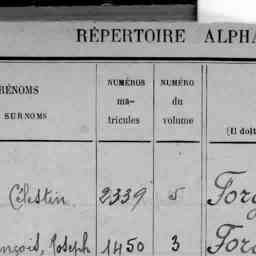 RÉPERTOIRE ALPHA
RÉNOMS
SURNOMS
NUMÉROS
ma-
tricules
NUMÉRO
du
volume
(Il doit
Célestin 2339 5 Forg
ançois, Joseph 1450 3 Forg